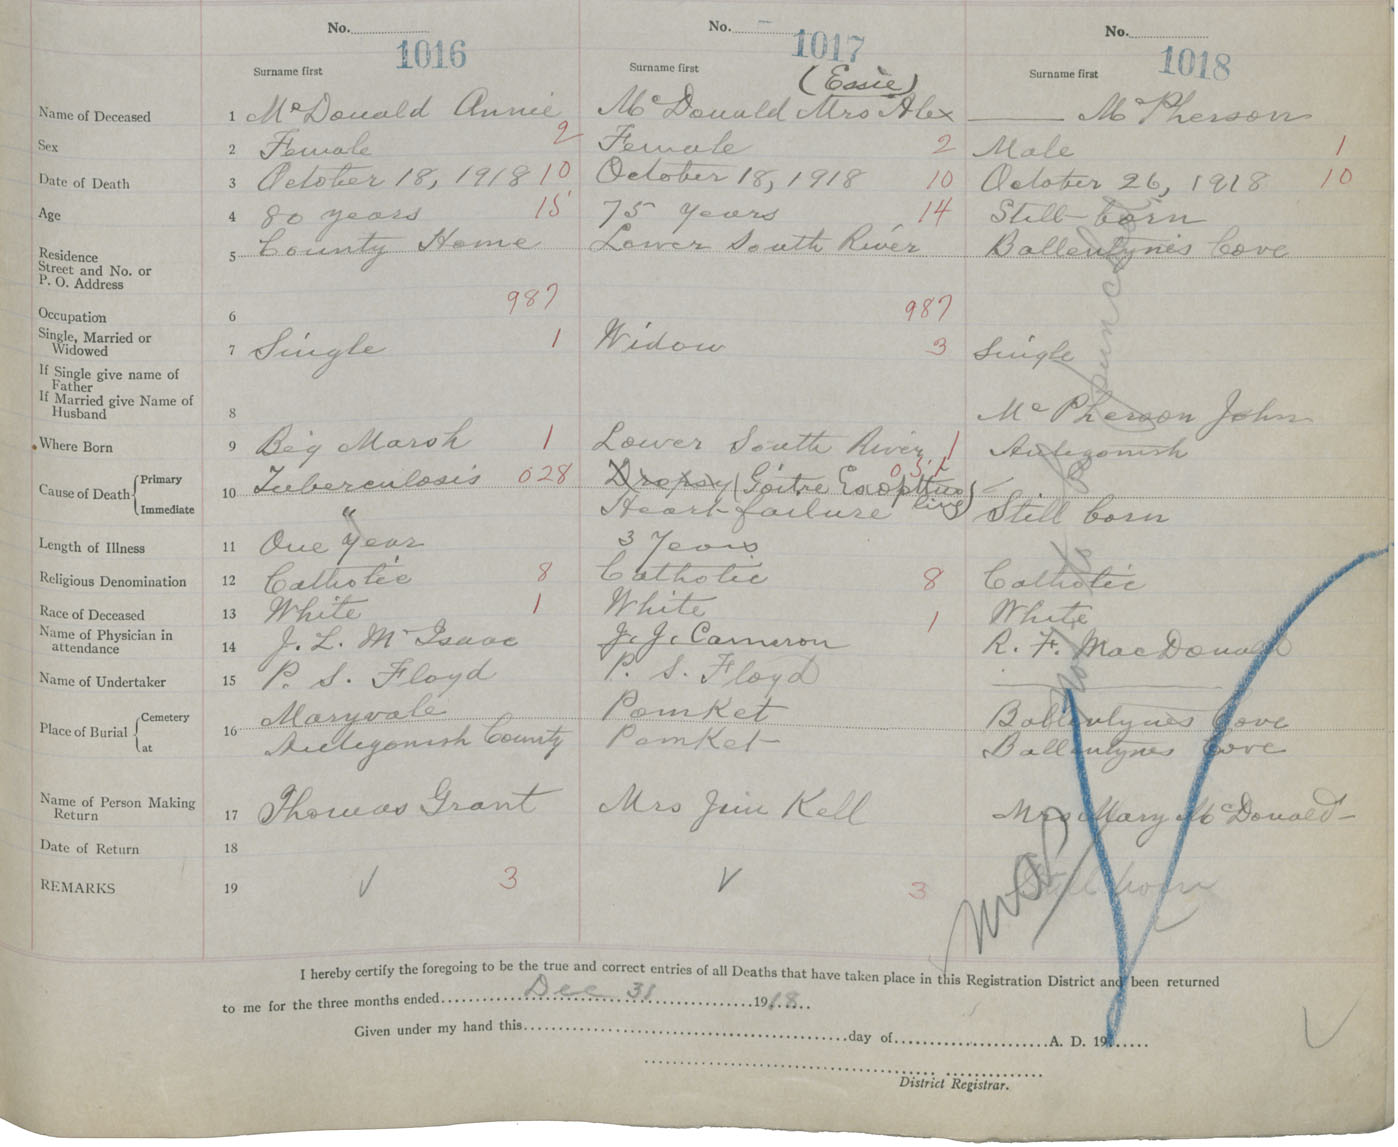 No. 1016 No. 1017 No. 1018
Surname first Surname first Surname first
(Essie)
Name of Deceased 1 McDonald Annie McDonald Mrs Alex —— McPherson
Sex 2 Female 2 Female 2 Male 1
Date of Death 3 October 18, 1918 10 October 18, 1918 10 October 26, 1918 10
Age 4 80 years 15 75 years 14 Still-born
Residence Street and No. or P. O. Address 5 County Home Lower South River Ballentynes Cove
Occupation 6 987 987
Single, Married or Widowed 7 Single 1 Widow 3 Single
If Single give name of Father
If Married give Name of Husband 8 McPherson John
Where Born 9 Big Marsh 1 Lower South River 1 Antigonish
Cause of Death Primary 10 Tuberculosis 028 Dropsy (Goitre
Immediate " Heart failure Still born
Length of Illness 11 One Year 3 Years
Religious Denomination 12 Catholic 8 Catholic 8 Catholic
Race of Deceased 13 White 1 White 1 White
Name of Physician in attendance 14 J. L. McIsaac J. J. Cameron R. F. MacDonald
Name of Undertaker 15 P. S. Floyd P. S. Floyd
Place of Burial Cemetery 16 Maryvale Pomket Ballentynes Cove
at Antigonish County Pomket Ballentynes Cove
Name of Person Making Return 17 Thomas Grant Mrs Jim Kell Mrs Mary McDonald
Date of Return 18
REMARKS 19 ✓ 3 ✓ 3 Still born
I hereby certify the foregoing to be the true and correct entries of all Deaths that have taken place in this Registration District and been returned
to me for the three months ended Dec 31 1918
Given under my hand this day of A. D. 19
District Registrar.